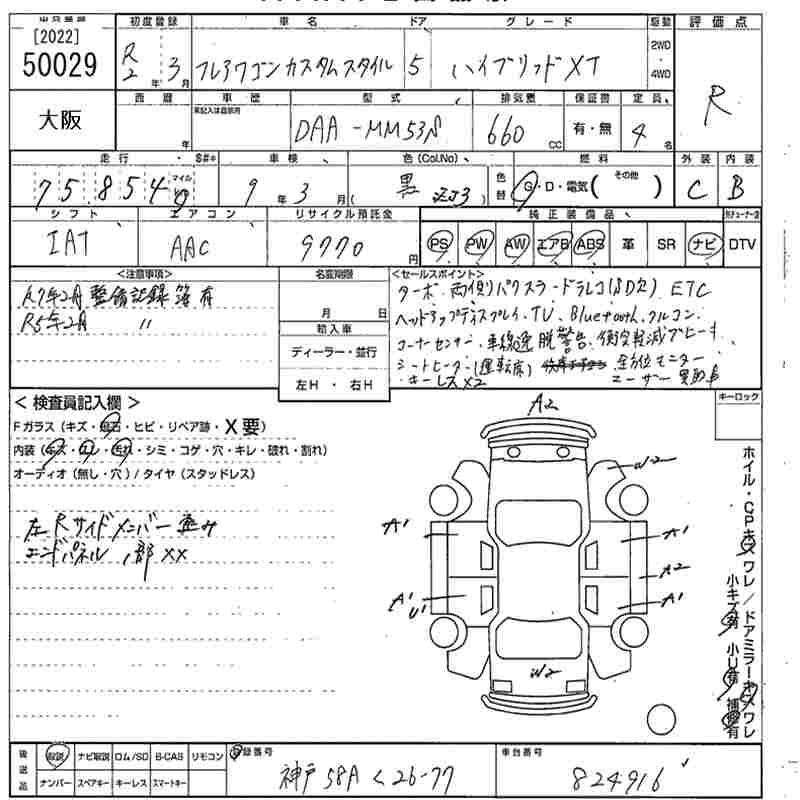 出品番号 初度登録 車名 ドア グレード 駆動 評価点
[2022] 50029 R2年 3月 フレアワゴンカスタムスタイル 5 ハイブリッドXT 2WD・4WD R
大阪 西暦 年 車歴 未記入は自家用 型式 排気量 保証書 定員
DAA-MM53S 660cc 有・無 4名
走行 S#* 車検 色(Col.No) 色替 燃料 外装 内装
75,854 マイル 9年3月 黒 ZJ3 G・D・電気( その他 ) C B
シフト エアコン リサイクル預託金 純正装備品
IAT AAC 9770円 PS PW AW エアB ABS 革 SR ナビ DTV
<注意事項> 名変期限 <セールスポイント>
R7年2月 整備記録簿有
R5年2月 〃
月 日
輸入車
ディーラー・並行
左H ・ 右H
ターボ、両側パワスラ、ドラレコ(SD欠) ETC
ヘッドアップディスプレイ、TV、Bluetooth、クルコン
コーナーセンサー、車線逸脱警告、衝突軽減ブレーキ
シートヒーター(運転席) 全方位モニター
・キーレスX2 ユーザー買取車
<検査員記入欄> キーロック
Fガラス(キズ・飛石・ヒビ・リペア跡・X要)
内装(キズ・コレ・汚れ・シミ・コゲ・穴・キレ・破れ・割れ)
オーディオ(無し・穴)/タイヤ(スタッドレス)
左Rサイドメンバー歪み
エンドパネル 1部XX
A2
W2
A1 A1
A2
A1 U1 A1
W2
ホイル・CPキズワレ/ドアミラーキズワレ
小キズ有 小U有 補修有
後送品 取説 ナビ取説 ロム/SD B-CAS リモコン 登録番号 車台番号
ナンバー スペアキー キーレス スマートキー 神戸 58A く 26-77 824916